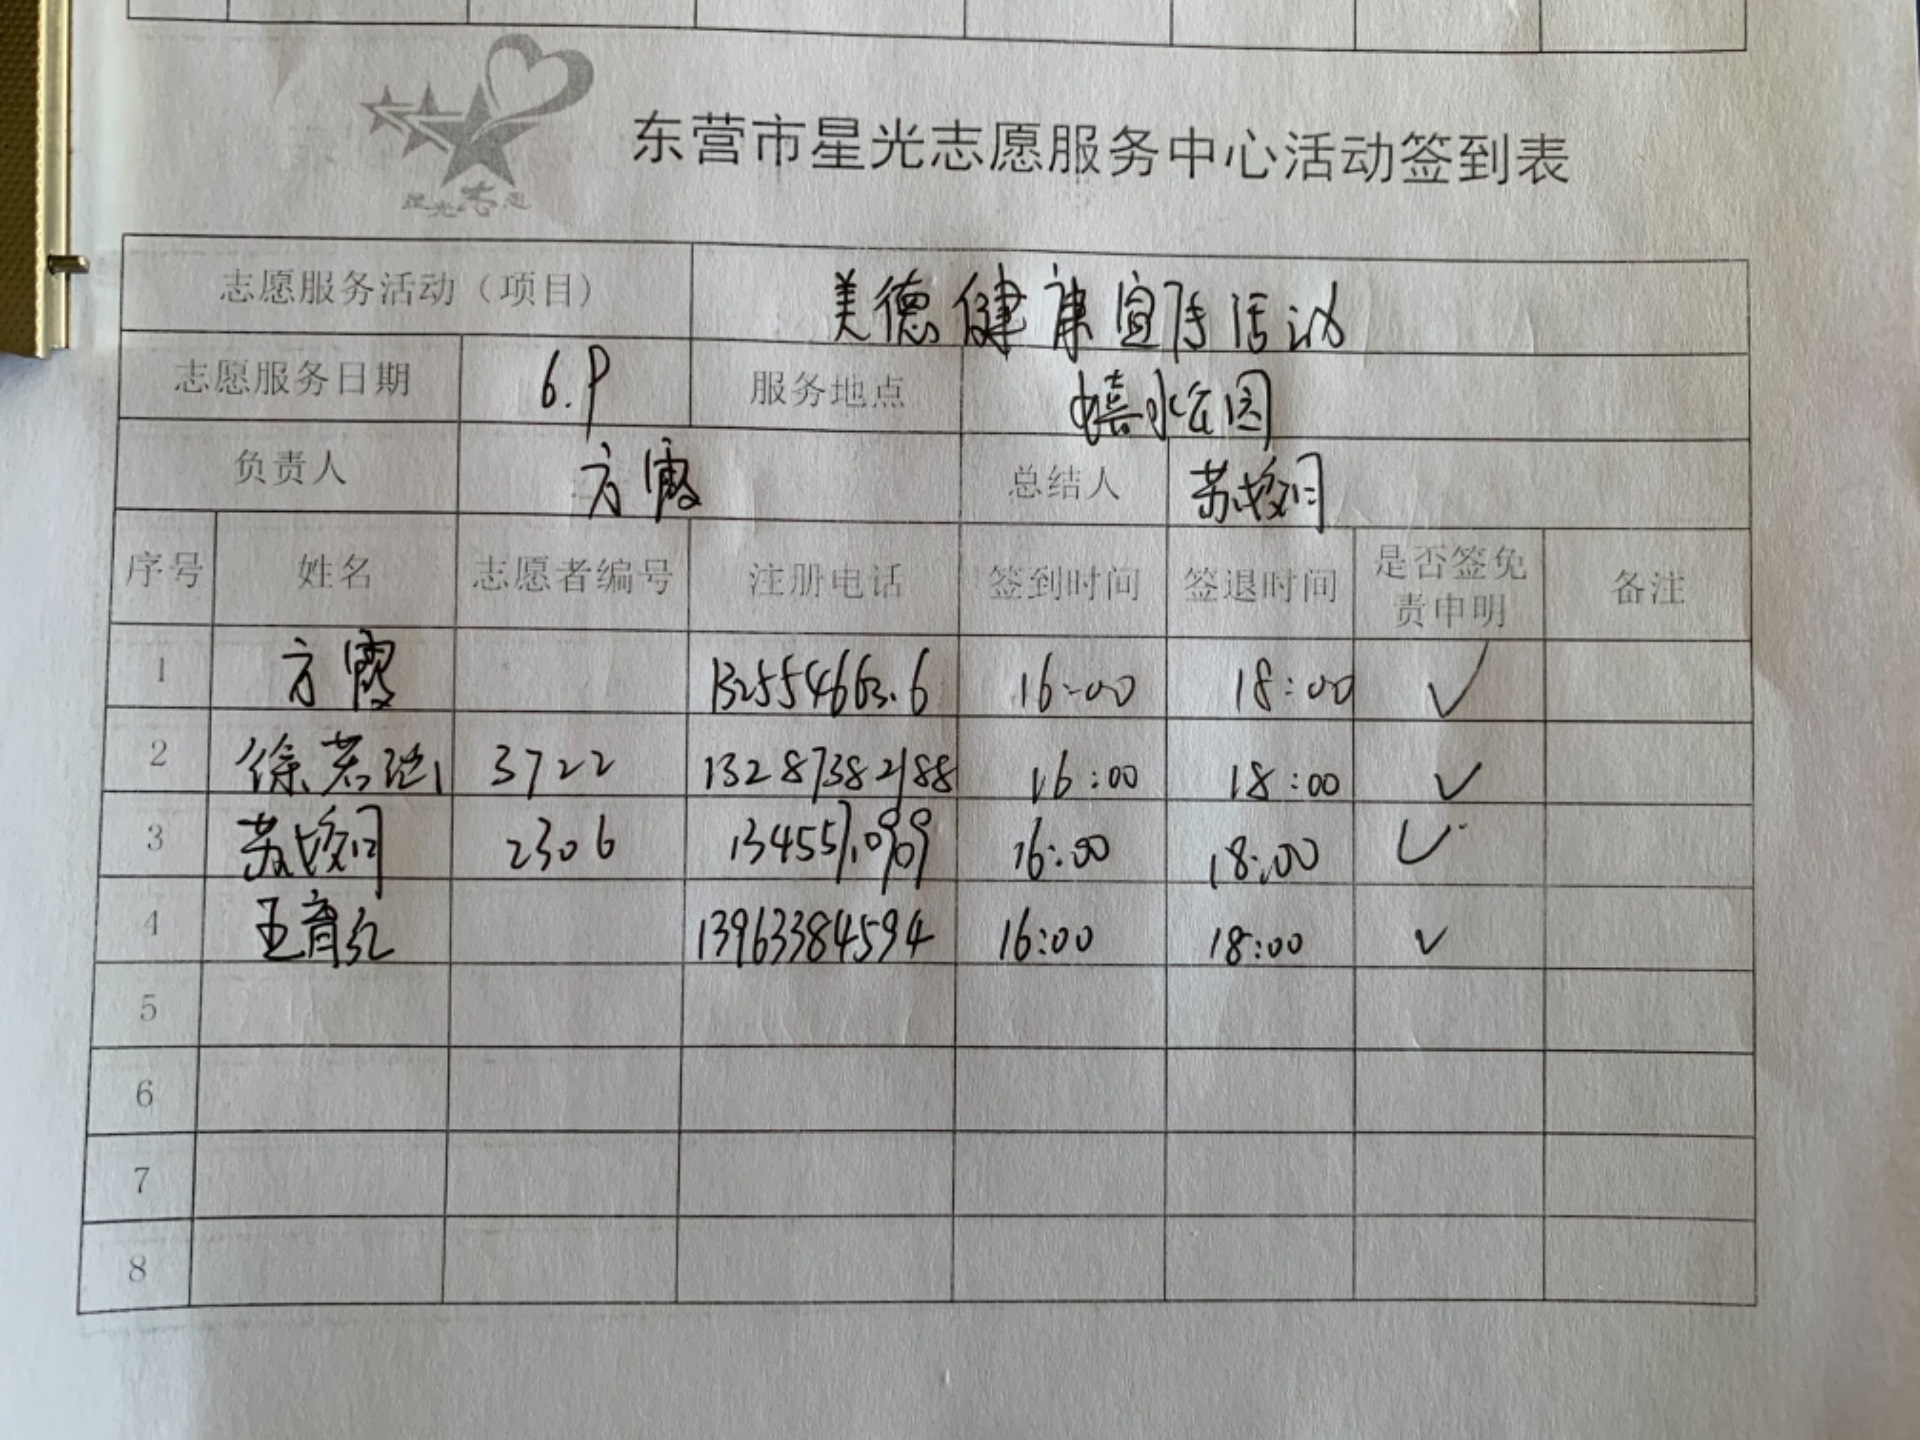 星光志愿
东营市星光志愿服务中心活动签到表
志愿服务活动（项目） 美德健康宣传活动
志愿服务日期 6.9 服务地点 嬉水公园
负责人 方霞 总结人 苏
序号 姓名 志愿者编号 注册电话 签到时间 签退时间 是否签免责申明 备注
1 方霞 16:00 18:00 ✓
2 徐 3722 13287382188 16:00 18:00 ✓
3 苏 2306 16:00 18:00 ✓
4 王育红 13963384594 16:00 18:00 ✓
5
6
7
8